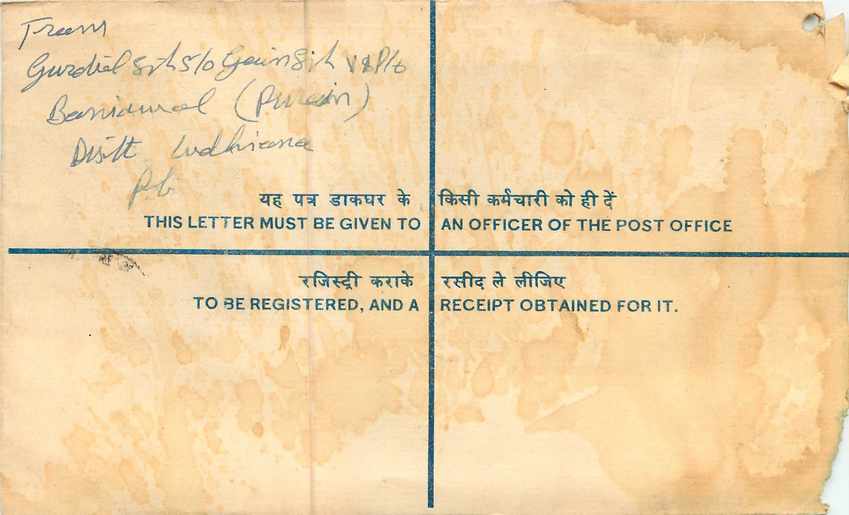 From
Gurdial Sgh S/o Gain Sigh V&P/o
Baniawal (Purain)
Distt Ludhiana
Pb
यह पत्र डाकघर के किसी कर्मचारी को ही दें
THIS LETTER MUST BE GIVEN TO AN OFFICER OF THE POST OFFICE
रजिस्ट्री कराके रसीद ले लीजिए
TO BE REGISTERED, AND A RECEIPT OBTAINED FOR IT.